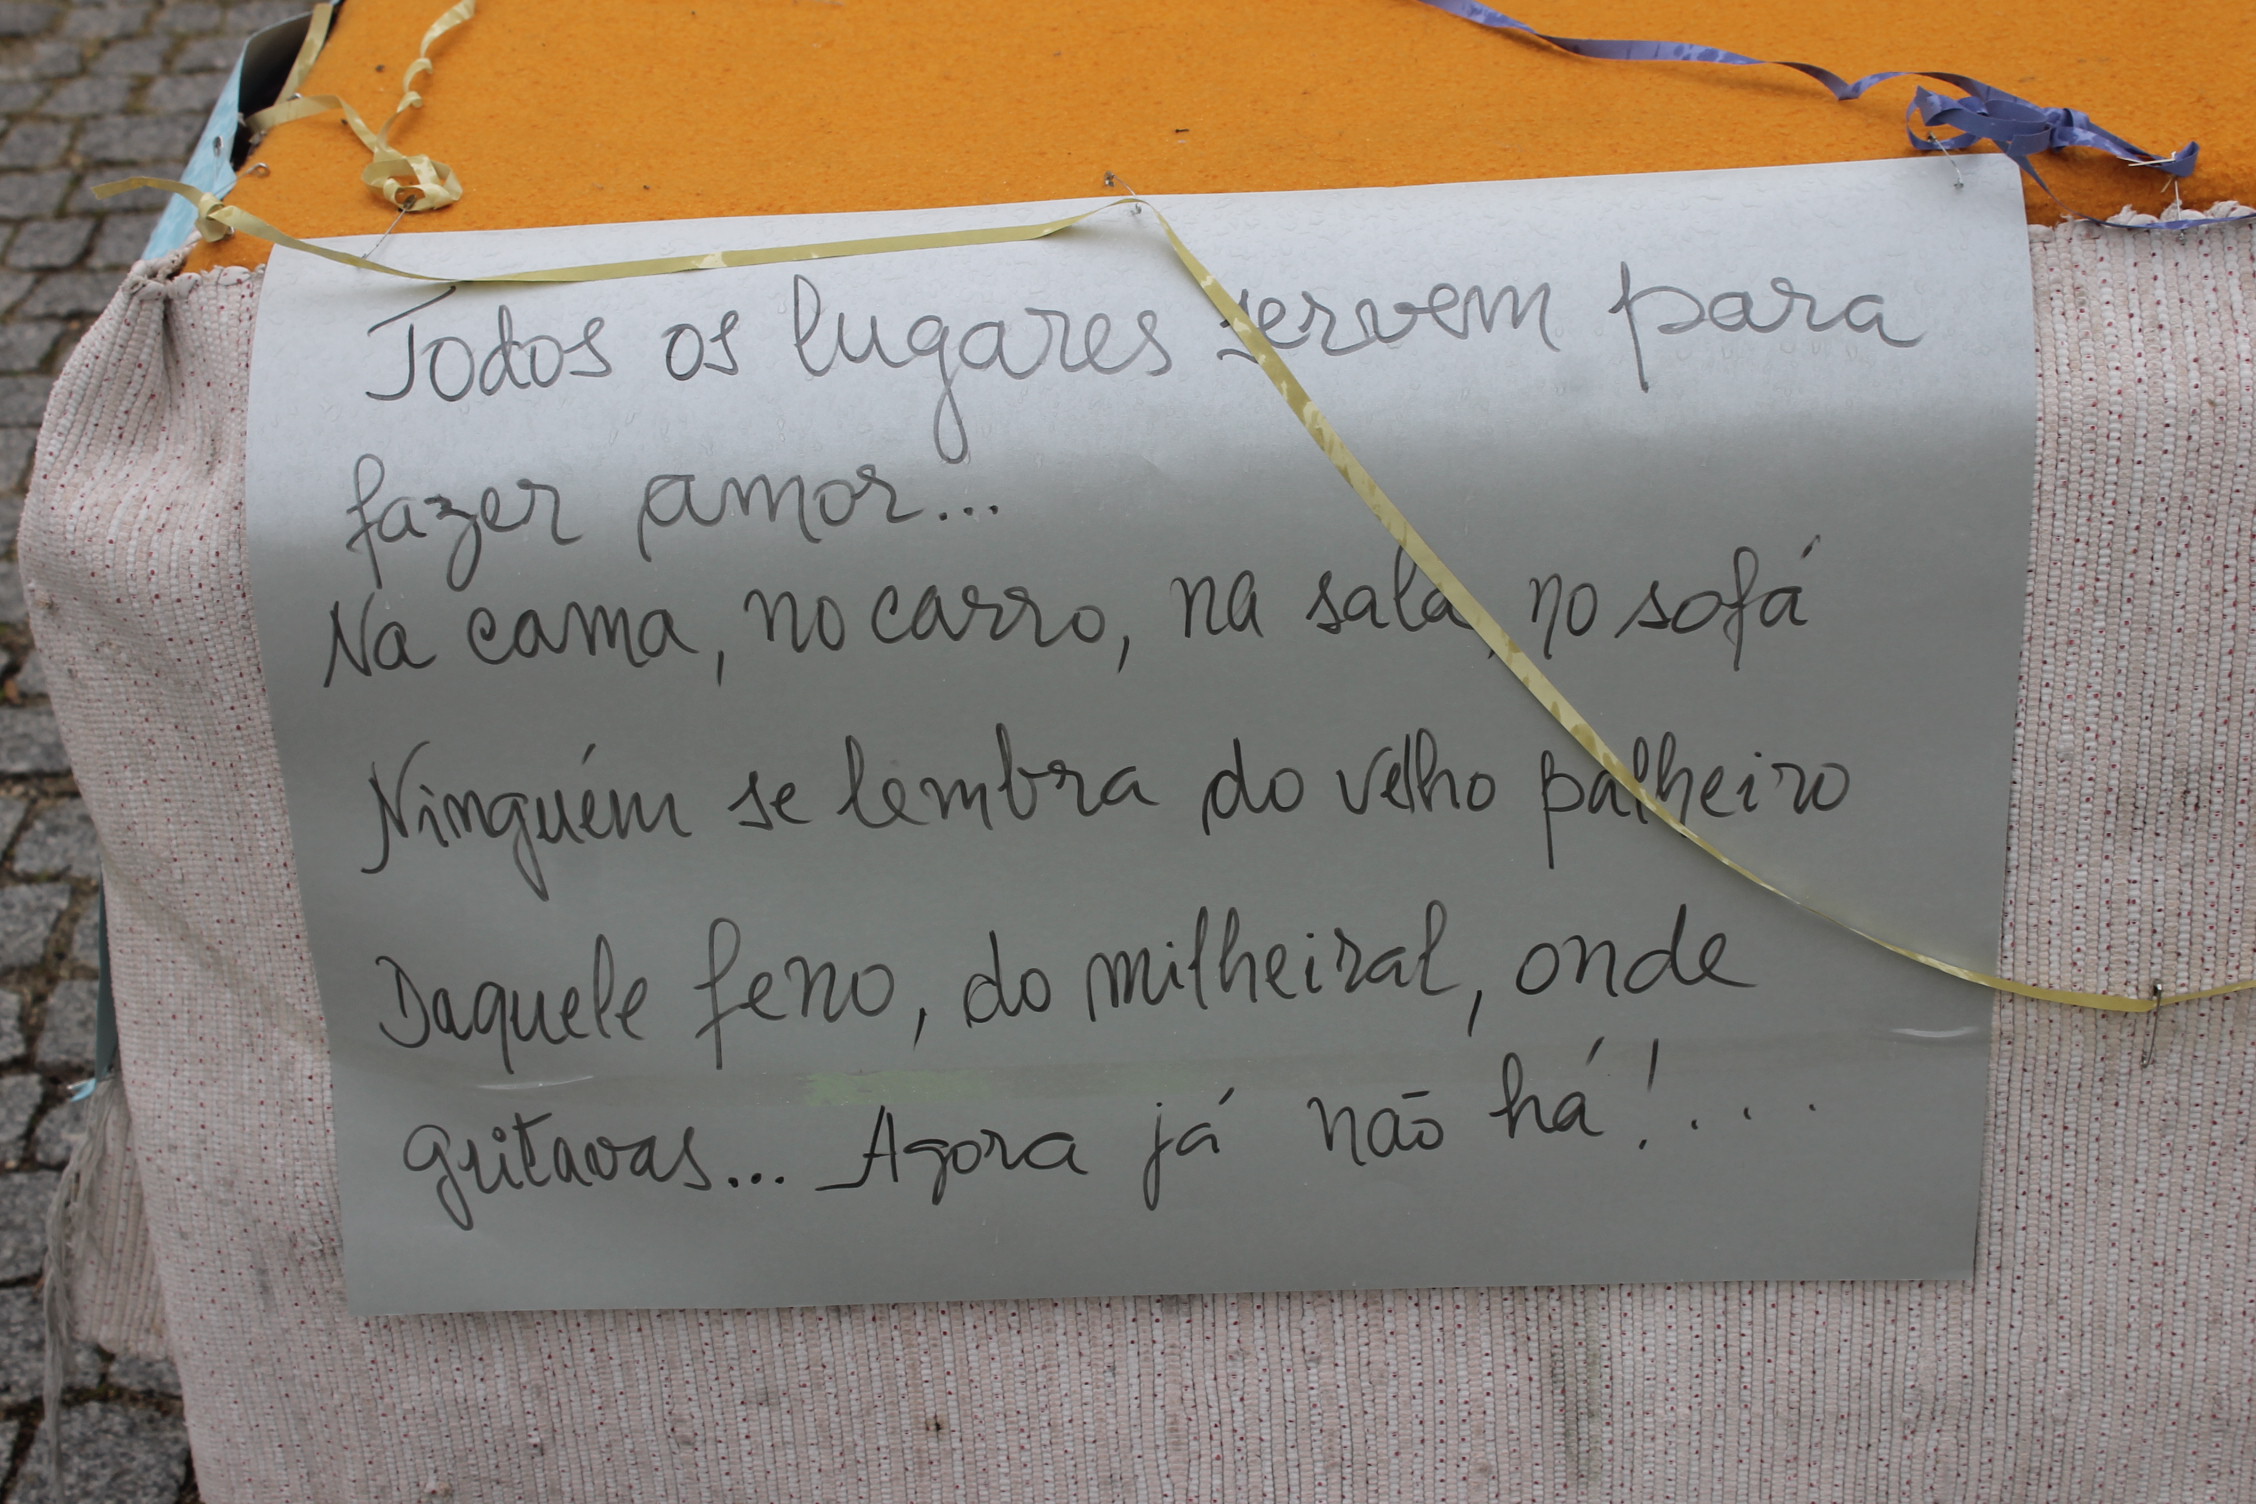 Todos os lugares servem para
fazer amor...
Na cama, no carro, na sala, no sofá
Ninguém se lembra do velho palheiro
Daquele feno, do milheiral, onde
gritavas... Agora já não há!...